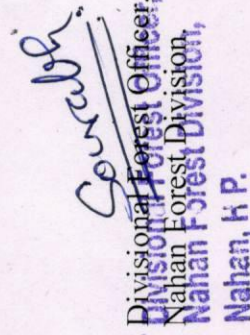 Divisional Forest Officer,
Nahan Forest Division,
Divisional Forest Officer,
Nahan Forest Division,
Nahan, H P.